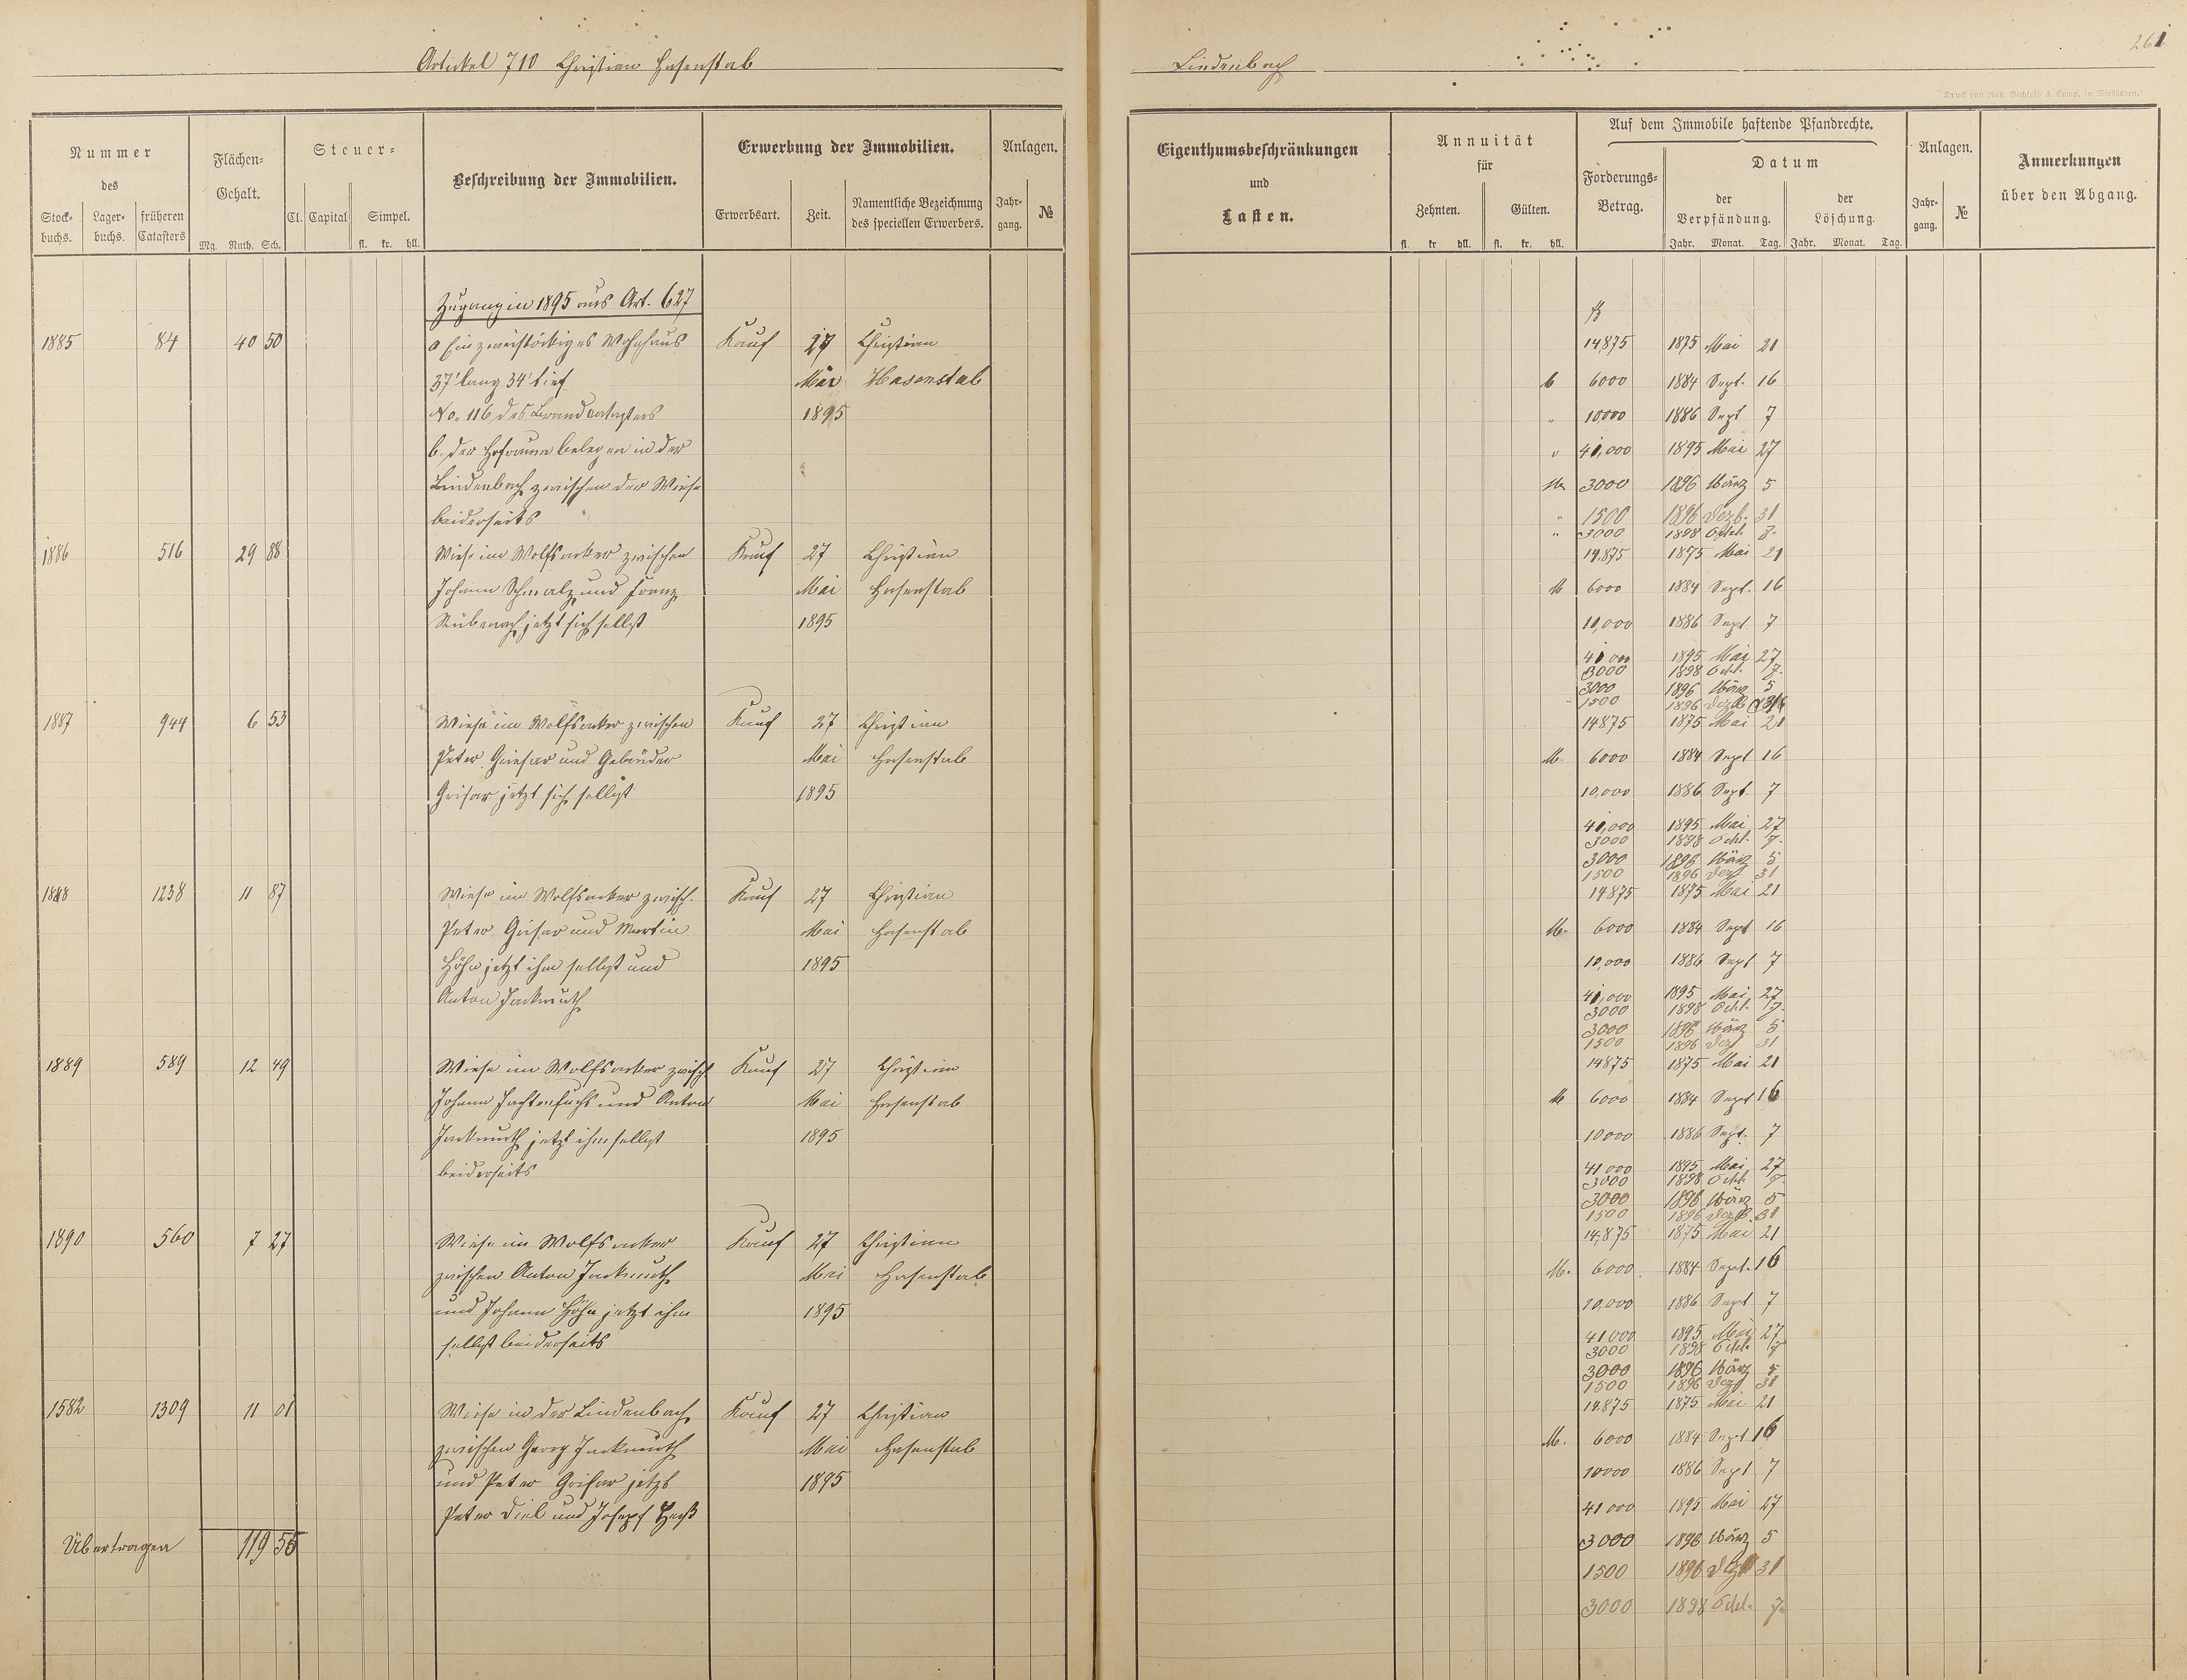 Artikel 710 Christian Hasenstab
Nummer
des
Stock-
buchs.
Lager-
buchs.
früheren
Catasters
Flächen-
Gehalt.
Mg. Ruth. Sch.
Steuer-
Cl. Capital Simpel.
fl. kr. hll.
Beschreibung der Immobilien.
Erwerbung der Immobilien.
Erwerbsart. Zeit.
Namentliche Bezeichnung
des speciellen Erwerbers.
Anlagen.
Jahr-
gang.
№
Zugang in 1895 aus Art. 627
1885 84 40 50 a Ein zweistöckiges Wohnhaus Kauf 27 Christian
37' lang 34' tief Mai Hasenstab
No. 116 des Brandcatasters 1895
b. der Hofraum belegen in der
Lindenbach zwischen der Wiese
beiderseits
1886 516 29 88 Wiese im Wolfsacker zwischen Kauf 27 Christian
Johann Schmalz und Franz Mai Hasenstab
jetzt sich selbst 1895
1887 944 6 53 Wiese im Wolfsacker zwischen Kauf 27 Christian
Peter Griesar und Gebrüder Mai Hasenstab
Grisar jetzt sich selbst 1895
1888 1238 11 87 Wiese im Wolfsacker zwisch. Kauf 27 Christian
Peter Grisar und Martin Mai Hasenstab
Höhn jetzt ihm selbst und 1895
Anton Jackmuth
1889 589 12 49 Wiese im Wolfsacker zwisch Kauf 27 Christian
Johann Hachenfuchs und Anton Mai Hasenstab
Jackmuth jetzt ihm selbst 1895
beiderseits
1890 560 7 27 Wiese im Wolfsacker Kauf 27 Christian
zwischen Anton Jackmuth Mai Hasenstab
und Johann Höhn jetzt ihm 1895
selbst beiderseits
1582 1309 11 01 Wiese in der Lindenbach Kauf 27 Christian
zwischen Georg Jackmuth Mai Hasenstab
und Peter Grisar jetzt 1895
Peter Diel und Joseph
Übertragen 119 55
Lindenbach
261
Druck von Rud. Bechtold & Comp. in Wiesbaden.
Eigenthumsbeschränkungen
und
Lasten.
Annuität
für
Zehnten. Gülten.
fl. kr hll. fl. kr. hll.
Auf dem Immobile haftende Pfandrechte.
Forderungs-
Betrag.
Datum
der
Verpfändung.
der
Löschung.
Jahr. Monat. Tag. Jahr. Monat. Tag.
Anlagen.
Jahr-
gang.
№
Anmerkungen
über den Abgang.
14,875 1875 Mai 21
6000 1884 Sept. 16
" 10,000 1886 Sept 7
" 41,000 1895 Mai 27
M 3000 1896 März 5
" 1500 1896 Dezb. 31
" 3000 1898 Octob. 7.
14,875 1875 Mai 21
M 6000 1884 Sept. 16
10,000 1886 Sept. 7
41000 1895 Mai 27
3000 1898 Octb. 7.
3000 1896 März 5
" 1500 1896 Dezb 31
14875 1875 Mai 21
M. 6000 1884 Sept 16
10,000 1886 Sept. 7
41,000 1895 Mai 27
3000 1898 Octb. 7.
3000 1896 März 5
1500 1896 Dezb 31
14875 1875 Mai 21
M. 6000 1884 Sept 16
10,000 1886 Sept 7
41,000 1895 Mai 27
3000 1898 Octb. 7.
3000 1896 März 5
1500 1896 Dezb 31
14875 1875 Mai 21
M 6000 1884 Sept 16
10000 1886 Sept. 7
41000 1895 Mai 27
3000 1898 Octb. 7.
3000 1896 März 5
1500 1896 Dezb. 31
14,875 1875 Mai 21
M. 6000 1884 Sept. 16
10,000 1886 Sept 7
41000 1895 Mai 27
3000 1898 Octb. 7
3000 1896 März 5
1500 1896 Dezb 31
14.875 1875 Mai 21
M. 6000 1884 Sept 16
10000 1886 Sept 7
41000 1895 Mai 27
3000 1896 März 5
1500 1896 Dezb 31
3000 1898 Octb. 7.